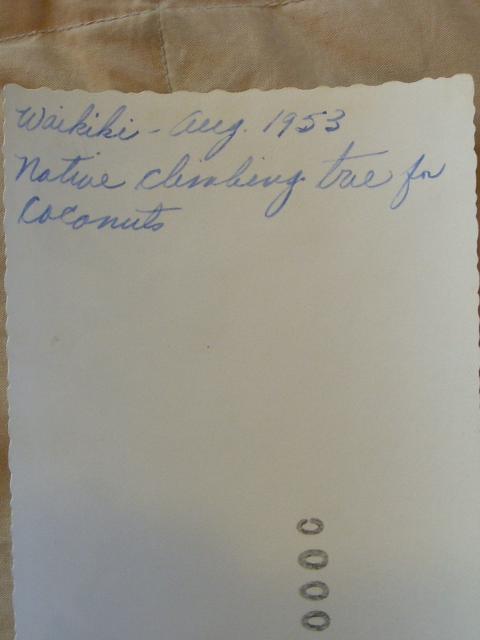 Waikiki - Aug. 1953
Native climbing tree for
Coconuts
000C